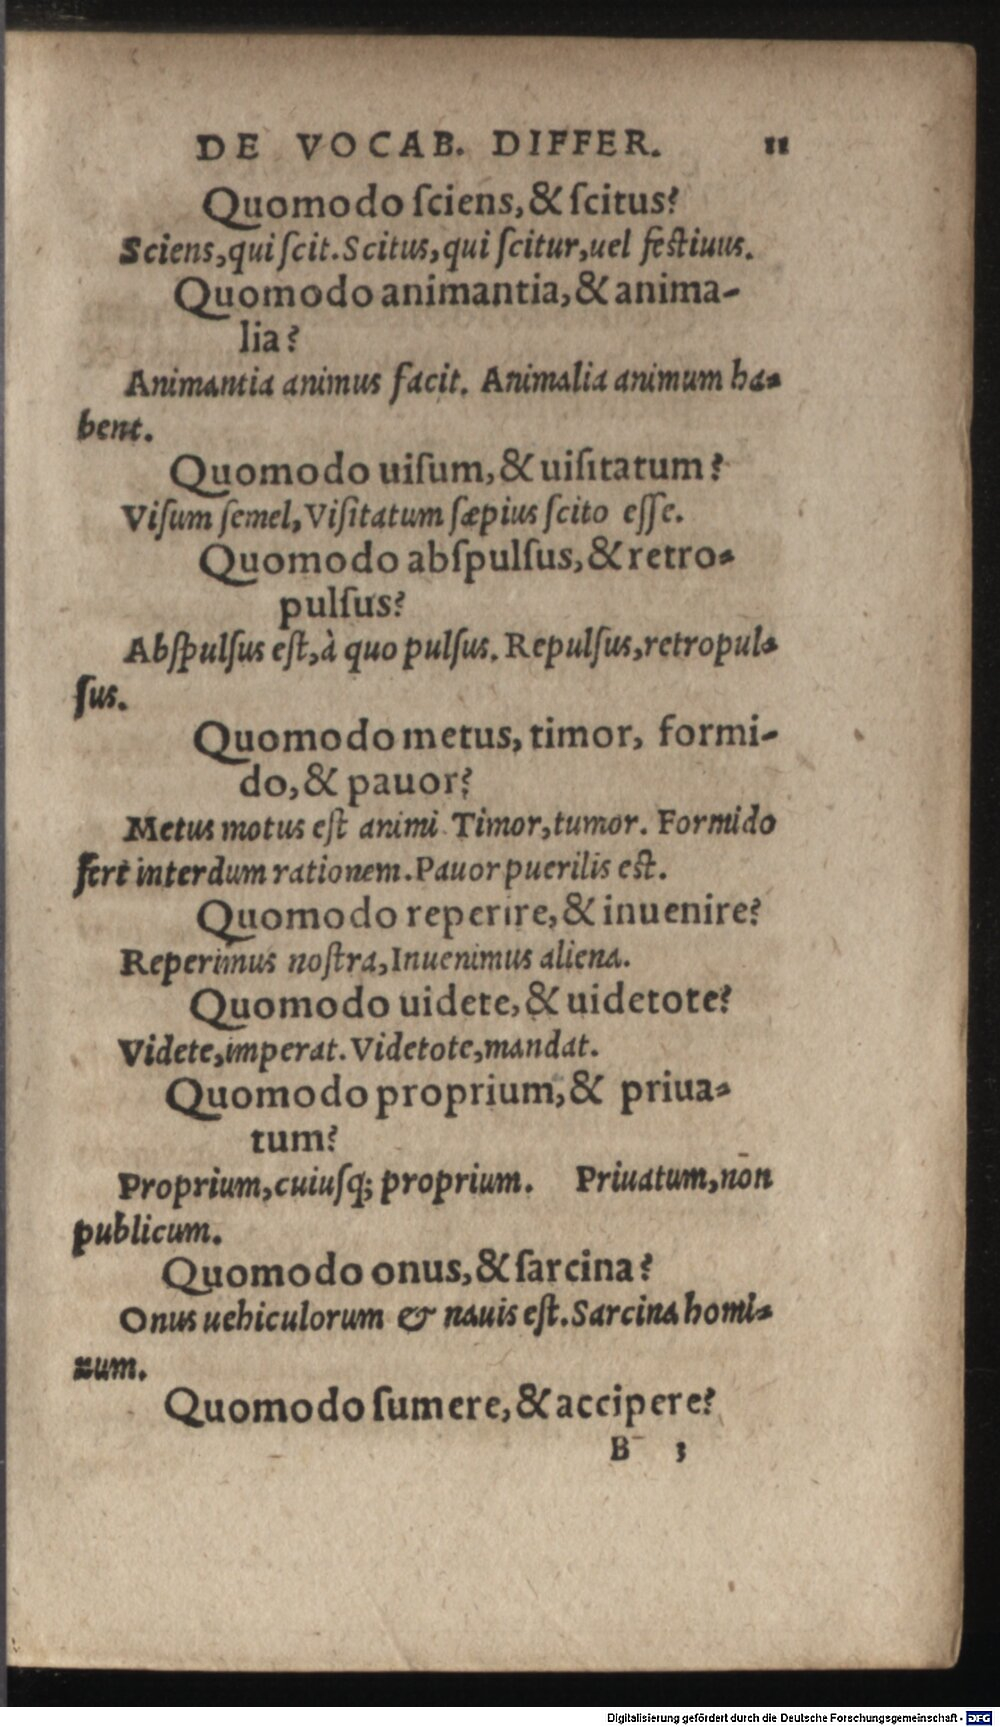 DE VOCAB. DIFFER. 11
Quomodo ſciens, & ſcitus?
Sciens, qui ſcit. Scitus, qui ſcitur, uel feſtiuus.
Quomodo animantia, & anima-
lia?
Animantia animus facit. Animalia animum ha-
bent.
Quomodo uiſum, & uiſitatum?
Viſum ſemel, Viſitatum ſæpius ſcito eſſe.
Quomodo abſpulſus, & retro-
pulſus?
Abſpulſus eſt, à quo pulſus. Repulſus, retropul-
ſus.
Quomodo metus, timor, formi-
do, & pauor?
Metus motus eſt animi. Timor, tumor. Formido
fert interdum rationem. Pauor puerilis eſt.
Quomodo reperire, & inuenire?
Reperimus noſtra, Inuenimus aliena.
Quomodo uidete, & uidetote?
Videte, imperat. Videtote, mandat.
Quomodo proprium, & priua-
tum?
Proprium, cuiuſq; proprium. Priuatum, nōn
publicum.
Quomodo onus, & ſarcina?
Onus uehiculorum & nauis eſt. Sarcina homi-
num.
Quomodo ſumere, & accipere?
B 3
Digitalisierung gefördert durch die Deutsche Forschungsgemeinschaft - DFG